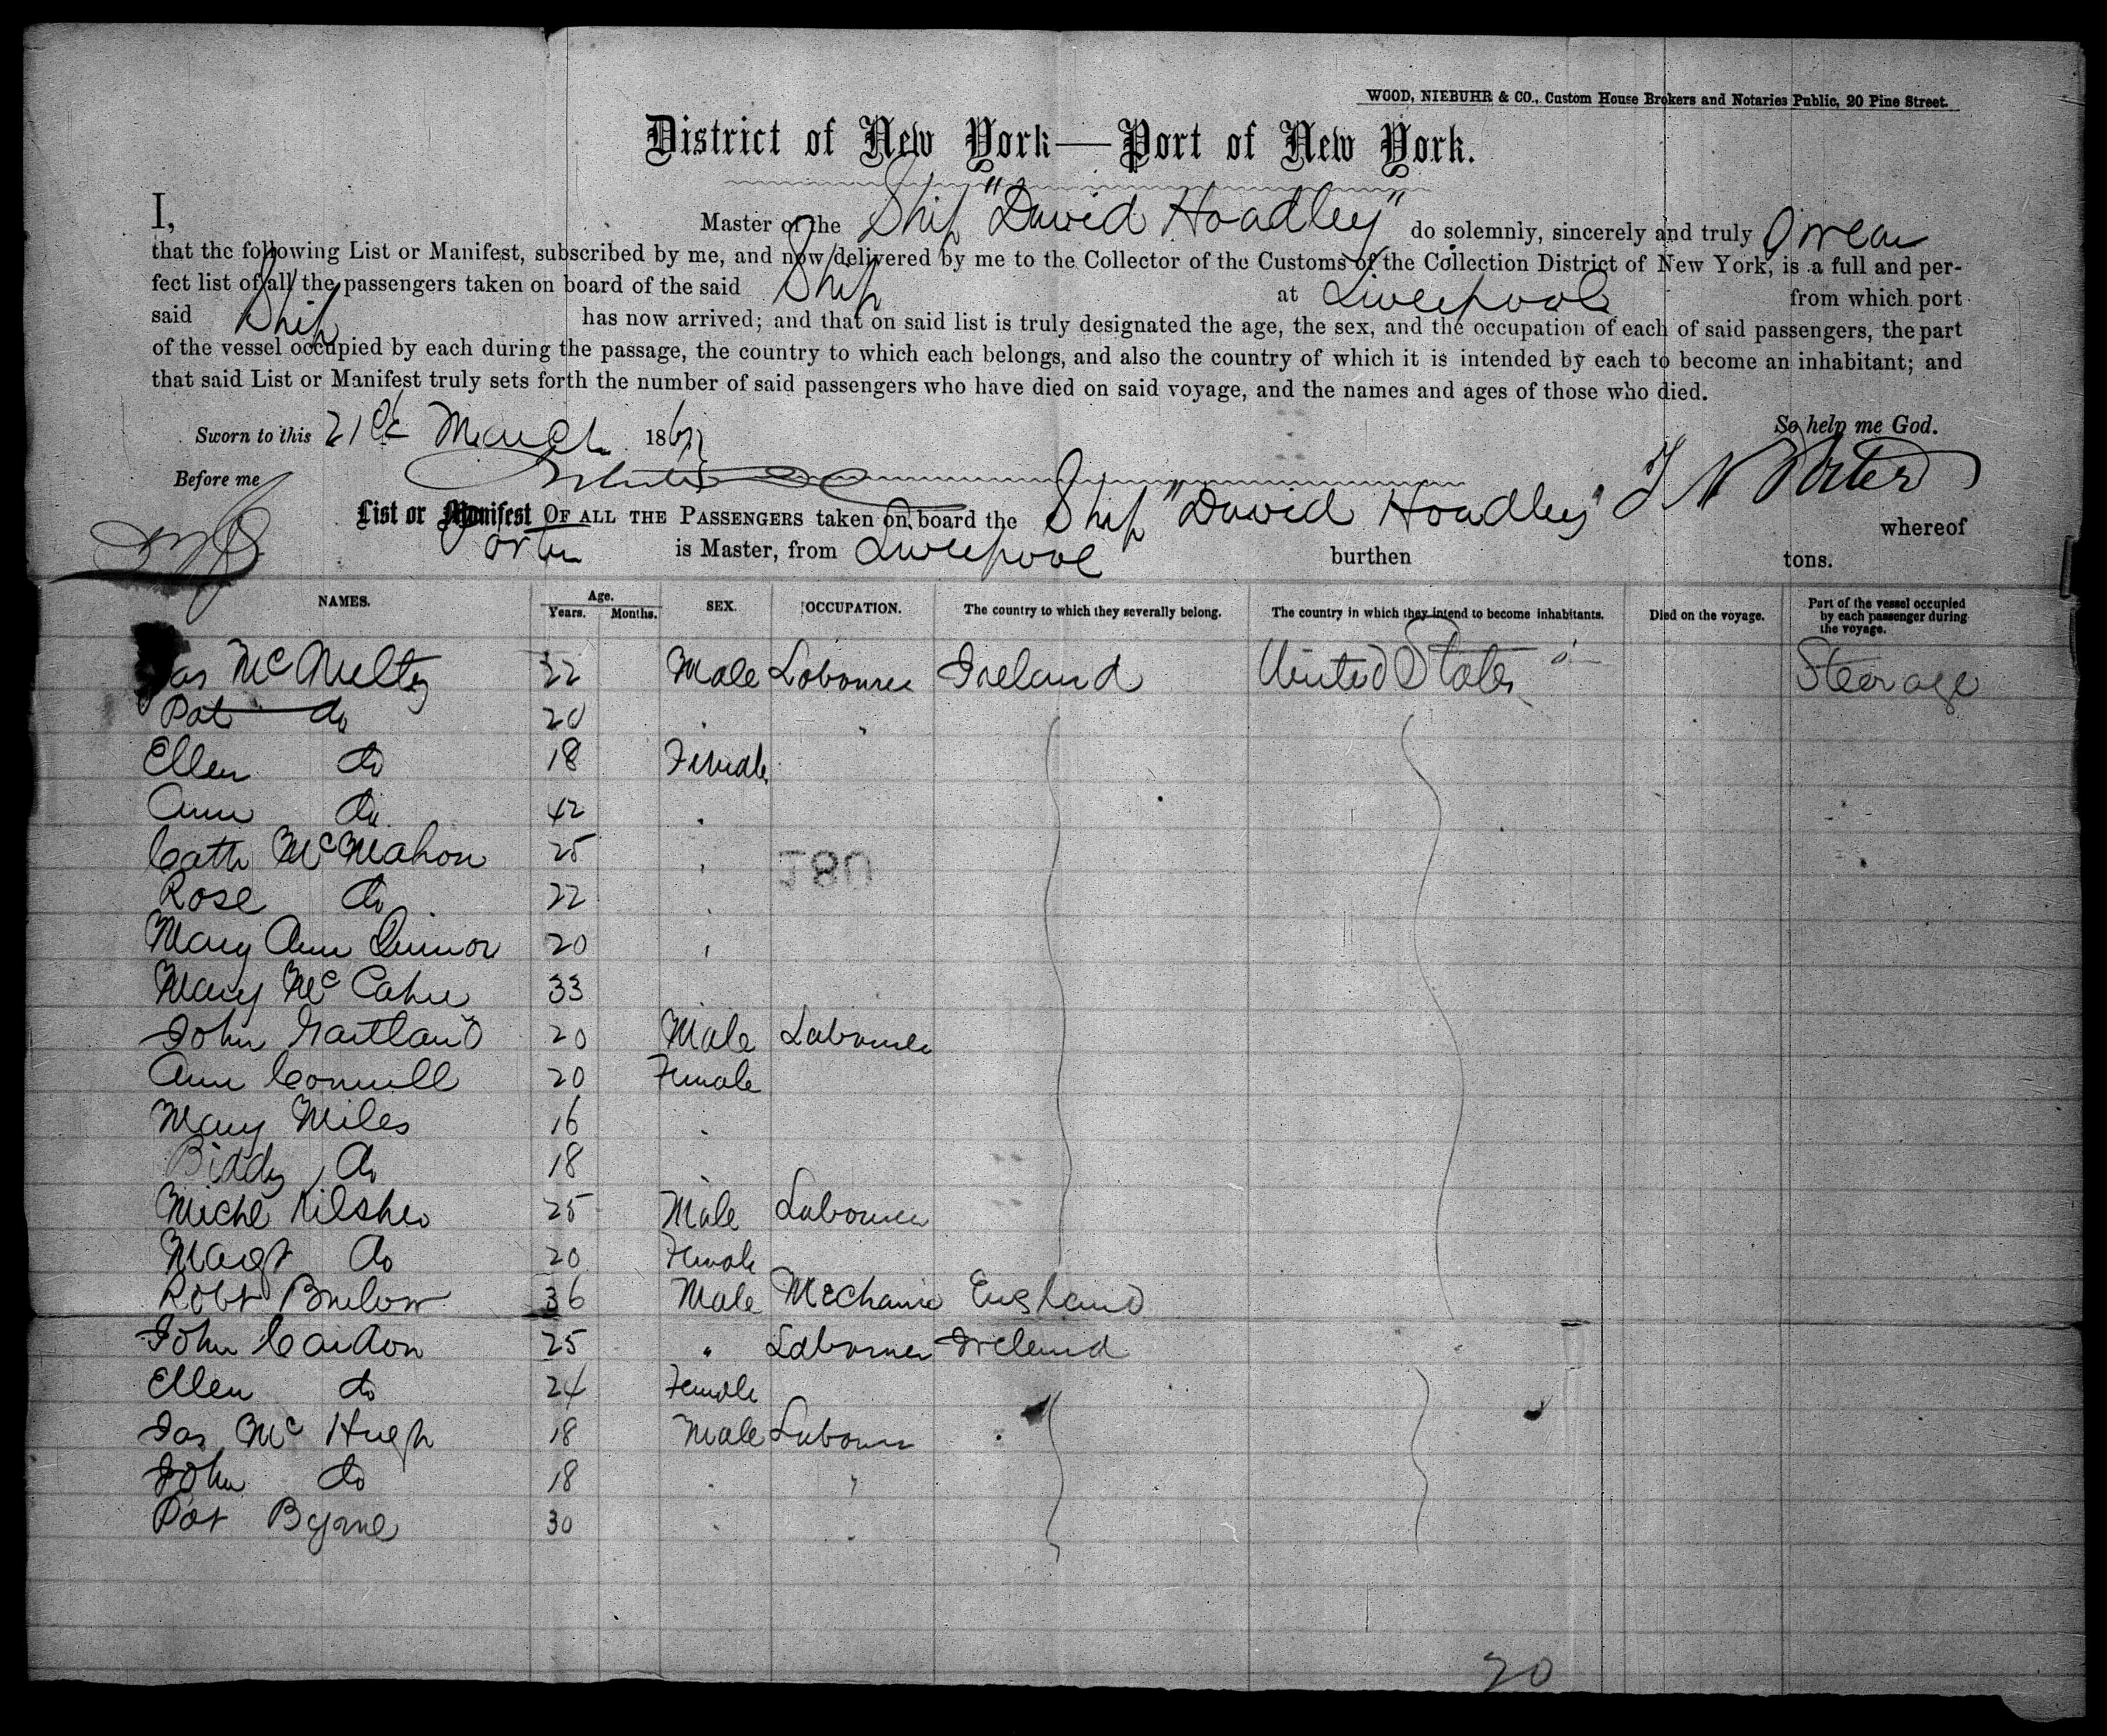 WOOD, NIEBUHR & CO., Custom House Brokers and Notaries Public, 20 Pine Street.
District of New York—Port of New York.
I, Master of the Ship "David Hoadley" do solemnly, sincerely and truly swear
that the following List or Manifest, subscribed by me, and now delivered by me to the Collector of the Customs of the Collection District of New York, is a full and per-
fect list of all the passengers taken on board of the said Ship at Liverpool from which port
said Ship has now arrived; and that on said list is truly designated the age, the sex, and the occupation of each of said passengers, the part
of the vessel occupied by each during the passage, the country to which each belongs, and also the country of which it is intended by each to become an inhabitant; and
that said List or Manifest truly sets forth the number of said passengers who have died on said voyage, and the names and ages of those who died.
Sworn to this 21st March 186 So help me God.
Before me
List or Manifest OF ALL THE PASSENGERS taken on board the Ship "David Hoadley" whereof
Porter is Master, from Liverpool burthen tons.
NAMES. Age. Years. Months. SEX. OCCUPATION. The country to which they severally belong. The country in which they intend to become inhabitants. Died on the voyage. Part of the vessel occupied by each passenger during the voyage.
Jas McNulty 32 Male Labourer Ireland United States Steerage
Pat do 20
Ellen do 18 Female
Ann do 42
Cath McMahon 25
180
Rose do 22
Mary Ann 20
Mary McCahie 33
John Gartland 20 Male Labourer
Ann Connell 20 Female
Mary Miles 16
Biddy do 18
Michl 25 Male Labourer
Magt do 20 Female
Robt 36 Male Mechanic England
John 25 " Labourer Ireland
Ellen do 24 Female
Jas McHugh 18 Male Labourer
John do 18 "
Pat Byrne 30 " "
20